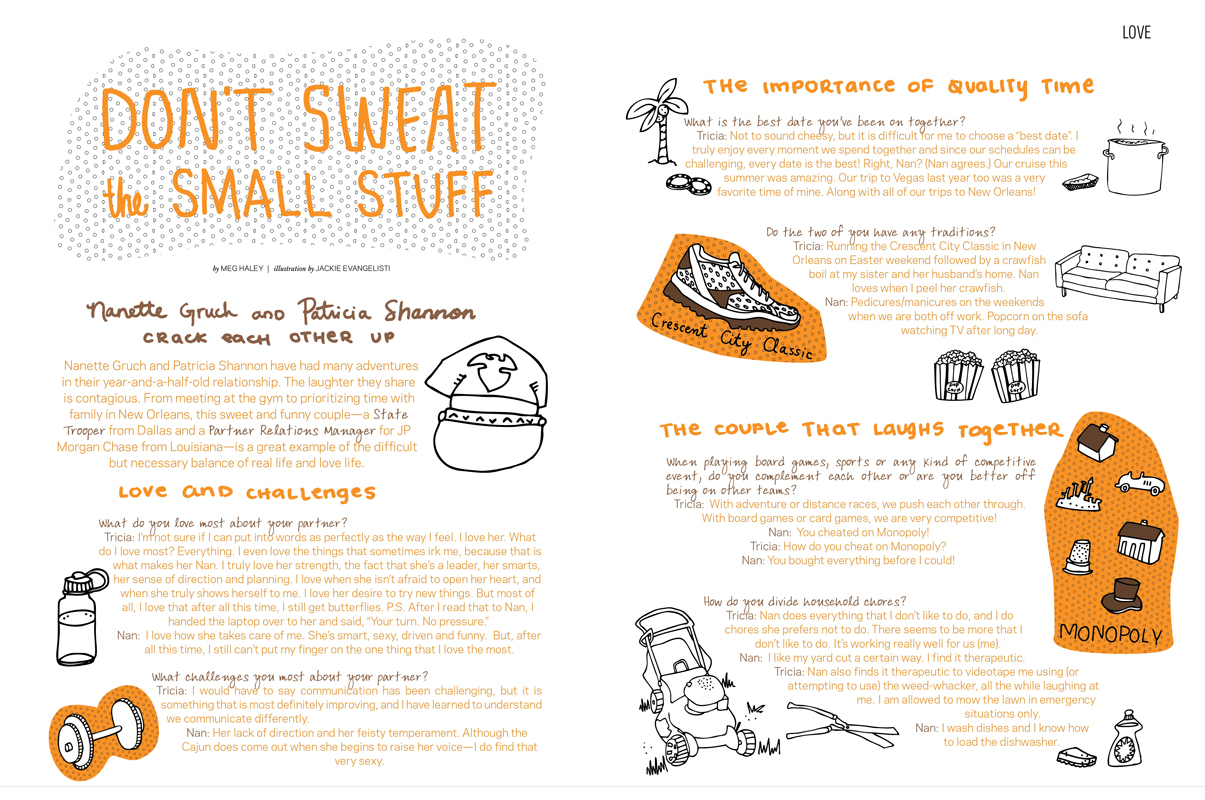 LOVE
DON'T SWEAT
the SMALL STUFF
by MEG HALEY | illustration by JACKIE EVANGELISTI
Nanette Gruch and Patricia Shannon
CRACK EACH OTHER UP
Nanette Gruch and Patricia Shannon have had many adventures
in their year-and-a-half-old relationship. The laughter they share
is contagious. From meeting at the gym to prioritizing time with
family in New Orleans, this sweet and funny couple—a State
Trooper from Dallas and a Partner Relations Manager for JP
Morgan Chase from Louisiana—is a great example of the difficult
but necessary balance of real life and love life.
LOVE and CHALLENGES
What do you love most about your partner?
Tricia: I'm not sure if I can put into words as perfectly as the way I feel. I love her. What
do I love most? Everything. I even love the things that sometimes irk me, because that is
what makes her Nan. I truly love her strength, the fact that she's a leader, her smarts,
her sense of direction and planning. I love when she isn't afraid to open her heart, and
when she truly shows herself to me. I love her desire to try new things. But most of
all, I love that after all this time, I still get butterflies. P.S. After I read that to Nan, I
handed the laptop over to her and said, “Your turn. No pressure.”
Nan: I love how she takes care of me. She's smart, sexy, driven and funny. But, after
all this time, I still can't put my finger on the one thing that I love the most.
What challenges you most about your partner?
Tricia: I would have to say communication has been challenging, but it is
something that is most definitely improving, and I have learned to understand
we communicate differently.
Nan: Her lack of direction and her feisty temperament. Although the
Cajun does come out when she begins to raise her voice—I do find that
very sexy.
THE IMPORTANCE OF QUALITY TIME
What is the best date you've been on together?
Tricia: Not to sound cheesy, but it is difficult for me to choose a “best date”. I
truly enjoy every moment we spend together and since our schedules can be
challenging, every date is the best! Right, Nan? (Nan agrees.) Our cruise this
summer was amazing. Our trip to Vegas last year too was a very
favorite time of mine. Along with all of our trips to New Orleans!
Do the two of you have any traditions?
Tricia: Running the Crescent City Classic in New
Orleans on Easter weekend followed by a crawfish
boil at my sister and her husband's home. Nan
loves when I peel her crawfish.
Nan: Pedicures/manicures on the weekends
when we are both off work. Popcorn on the sofa
watching TV after long day.
Crescent City Classic
POP CORN
POP CORN
THE COUPLE THAT LAUGHS TOGETHER
When playing board games, sports or any kind of competitive
event, do you complement each other or are you better off
being on other teams?
Tricia: With adventure or distance races, we push each other through.
With board games or card games, we are very competitive!
Nan: You cheated on Monopoly!
Tricia: How do you cheat on Monopoly?
Nan: You bought everything before I could!
MONOPOLY
How do you divide household chores?
Tricia: Nan does everything that I don't like to do, and I do
chores she prefers not to do. There seems to be more that I
don't like to do. It's working really well for us (me).
Nan: I like my yard cut a certain way. I find it therapeutic.
Tricia: Nan also finds it therapeutic to videotape me using (or
attempting to use) the weed-whacker, all the while laughing at
me. I am allowed to mow the lawn in emergency
situations only.
Nan: I wash dishes and I know how
to load the dishwasher.